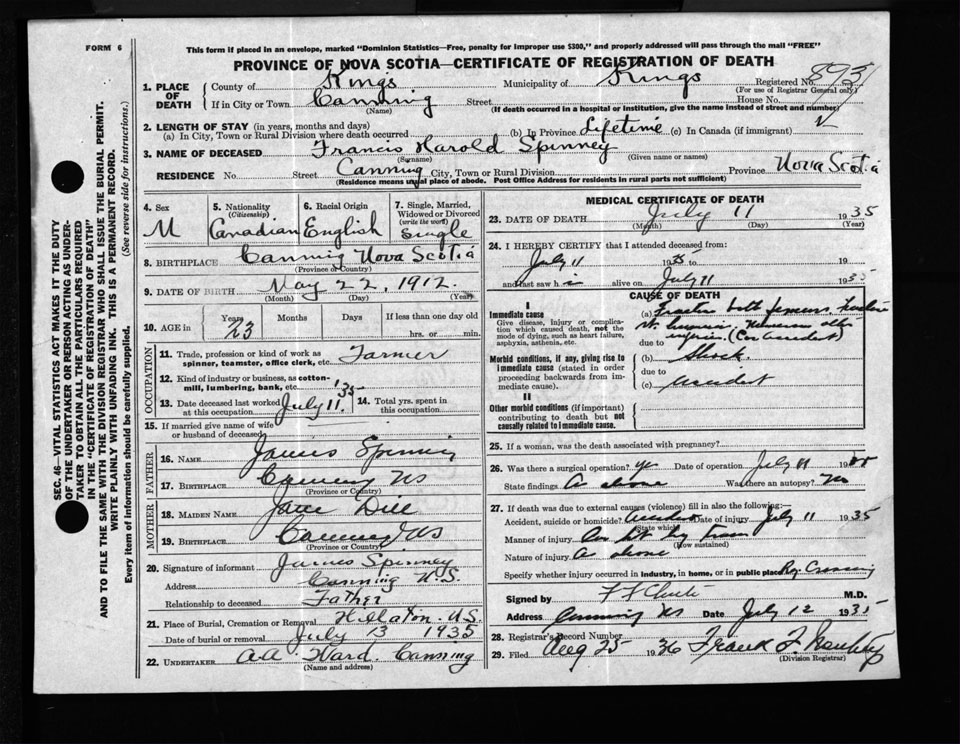 FORM 6
This form if placed in an envelope, marked "Dominion Statistics—Free, penalty for improper use $300," and properly addressed will pass through the mail "FREE"
PROVINCE OF NOVA SCOTIA—CERTIFICATE OF REGISTRATION OF DEATH
1. PLACE OF DEATH
County of Kings Municipality of Kings Registered No. 8931
(For use of Registrar General only)
If in City or Town Canning Street House No.
(Name) (If death occurred in a hospital or institution, give the name instead of street and number)
2. LENGTH OF STAY (in years, months and days)
(a) In City, Town or Rural Division where death occurred (b) In Province Lifetime (c) In Canada (if immigrant)
3. NAME OF DECEASED Francis Harold Spinney
(Surname) (Given name or names)
RESIDENCE No. Street Canning City, Town or Rural Division Province Nova Scotia
(Residence means usual place of abode. Post Office Address for residents in rural parts not sufficient)
4. Sex M
5. Nationality (Citizenship) Canadian
6. Racial Origin English
7. Single, Married, Widowed or Divorced (write the word) Single
8. BIRTHPLACE Canning Nova Scotia
(Province or Country)
9. DATE OF BIRTH May 22, 1912
(Month) (Day) (Year)
10. AGE in Years 23 Months Days If less than one day old
hrs. or min.
OCCUPATION
11. Trade, profession or kind of work as spinner, teamster, office clerk, etc. Farmer
12. Kind of industry or business, as cotton-mill, lumbering, bank, etc.
13. Date deceased last worked at this occupation July 11, '35
14. Total yrs. spent in this occupation
15. If married give name of wife or husband of deceased
FATHER
16. Name James Spinney
17. BIRTHPLACE Canning NS
(Province or Country)
MOTHER
18. MAIDEN NAME Jane Dill
19. BIRTHPLACE Canning NS
(Province or Country)
20. Signature of informant James Spinney
Address Canning N.S.
Relationship to deceased Father
21. Place of Burial, Cremation or Removal Hillaton N.S.
Date of burial or removal July 13 1935
22. UNDERTAKER A A Ward. Canning
(Name and address)
MEDICAL CERTIFICATE OF DEATH
23. DATE OF DEATH July 11 1935
(Month) (Day) (Year)
24. I HEREBY CERTIFY that I attended deceased from:
July 11 1935 to 19
and last saw h i alive on July 11 1935
CAUSE OF DEATH
Immediate cause
Give disease, injury or complication which caused death, not the mode of dying, such as heart failure, asphyxia, asthenia, etc.
(a) Fracture both femurs.
injuries. (Car accident)
due to
Morbid conditions, if any, giving rise to immediate cause (stated in order proceeding backwards from immediate cause).
(b) Shock.
due to
(c) Accident
II
Other morbid conditions (if important) contributing to death but not causally related to immediate cause.
25. If a woman, was the death associated with pregnancy?
26. Was there a surgical operation? Date of operation July 11 19
State findings As above Was there an autopsy? No
27. If death was due to external causes (violence) fill in also the following:
Accident, suicide or homicide? Accident Date of injury July 11 1935
(State which)
Manner of injury Car hit by train
(How sustained)
Nature of injury As above
Specify whether injury occurred in industry, in home, or in public place Ry. Crossing
Signed by M.D.
Address Canning NS Date July 12 1935
28. Registrar's Record Number
29. Filed Aug 25 1936 Frank
(Division Registrar)
SEC. 46—VITAL STATISTICS ACT MAKES IT THE DUTY OF THE UNDERTAKER OR PERSON ACTING AS UNDERTAKER TO OBTAIN ALL THE PARTICULARS REQUIRED IN THE "CERTIFICATE OF REGISTRATION OF DEATH" AND TO FILE THE SAME WITH THE DIVISION REGISTRAR WHO SHALL ISSUE THE BURIAL PERMIT.
WRITE PLAINLY WITH UNFADING INK. THIS IS A PERMANENT RECORD.
Every item of information should be carefully supplied. (See reverse side for instructions.)